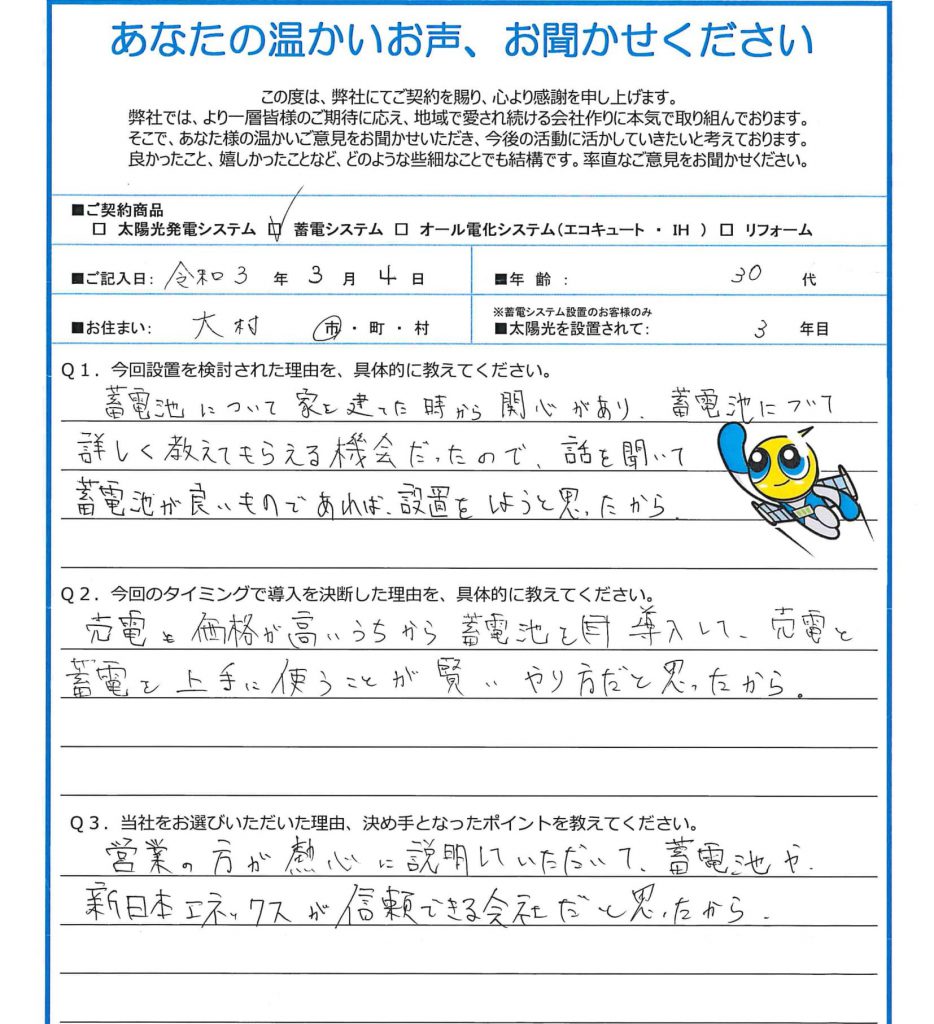 あなたの温かいお声、お聞かせください
この度は、弊社にてご契約を賜り、心より感謝を申し上げます。
弊社では、より一層皆様のご期待に応え、地域で愛され続ける会社作りに本気で取り組んでおります。
そこで、あなた様の温かいご意見をお聞かせいただき、今後の活動に活かしていきたいと考えております。
良かったこと、嬉しかったことなど、どのような些細なことでも結構です。率直なご意見をお聞かせください。
■ご契約商品
□ 太陽光発電システム ☑ 蓄電システム □ オール電化システム(エコキュート ・ IH ) □ リフォーム
■ご記入日: 令和3 年 3 月 4 日
■年 齢 : 30 代
■お住まい: 大村 市・町・村
※蓄電システム設置のお客様のみ
■太陽光を設置されて: 3 年目
Q1. 今回設置を検討された理由を、具体的に教えてください。
蓄電池について家を建てた時から関心があり、蓄電池について
詳しく教えてもらえる機会だったので、話を聞いて
蓄電池が良いものであれば、設置をしようと思ったから。
Q2. 今回のタイミングで導入を決断した理由を、具体的に教えてください。
売電を価格が高いうちから蓄電池を導入して、売電と
蓄電を上手に使うことが賢いやり方だと思ったから。
Q3. 当社をお選びいただいた理由、決め手となったポイントを教えてください。
営業の方が熱心に説明していただいて、蓄電池や、
新日本エネックスが信頼できる会社だと思ったから。